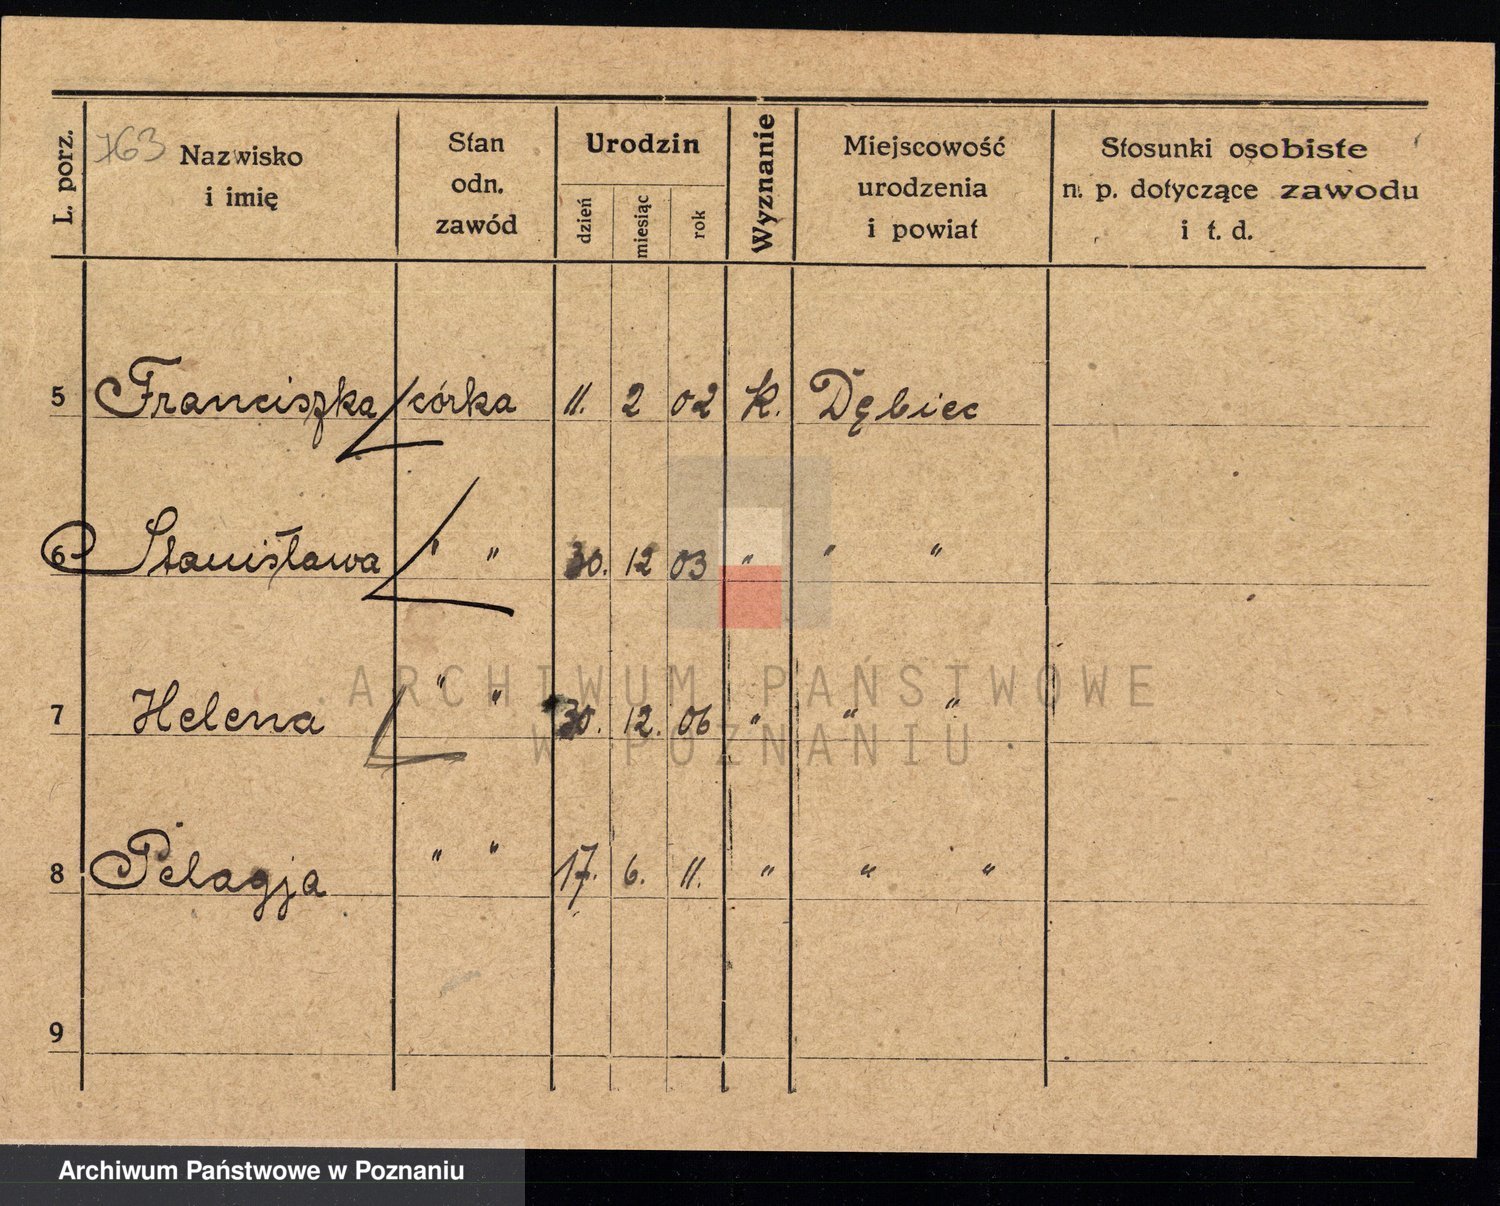 763
L. porz. Nazwisko i imię Stan odn. zawód Urodzin dzień miesiąc rok Wyznanie Miejscowość urodzenia i powiat Stosunki osobiste n. p. dotyczące zawodu i t. d.
5 Franciszka córka 11. 2 02 K. Dębiec
6 Stanisława " " 30. 12 03 " " "
7 Helena " " 30. 12. 06 " " "
8 Pelagja " " 17. 6. 11. " " "
9
ARCHIWUM PAŃSTWOWE
W POZNANIU
Archiwum Państwowe w Poznaniu